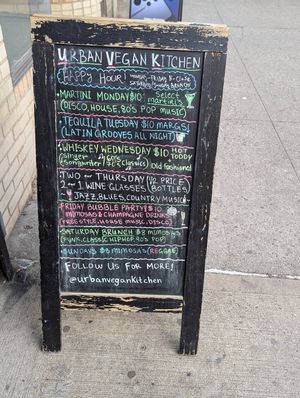 URBAN VEGAN KITCHEN
HAPPY HOUR!
MARTINI MONDAY $10 Select martini's
(DISCO, HOUSE, 80'S POP MUSIC)
TEQUILA TUESDAY $10 MARGS
(LATIN GROOVES ALL NIGHT)
WHISKEY WEDNESDAY $10 HOT TODDY
Singer Songwriter Classics) old fashioned
TWO FOR THURSDAY (1/2 PRICE
2 1 WINE GLASSES BOTTLES)
JAZZ, BLUES, COUNTRY MUSIC
FRIDAY BUBBLE PARTY $10
MIMOSAS & CHAMPAGNE DRINKS
FREESTYLE, HOUSE MUSIC, DISCO)
SATURDAY BRUNCH $8 MIMOSAS
(FUNK, CLASSIC HIPHOP, 90s POP)
SUNDAYS $8 MIMOSAS (REGGAE)
FOLLOW US FOR MORE!
@urbanvegankitchen